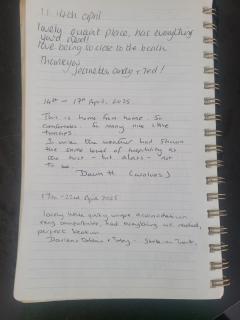 11-14th april
lovely quaint place, has everything
you'd need!!
love being so close to the beach
Thankyou
Jeanette, andy + Ted!
14th - 17th April 2025
This is home from home. So
comfortable. So many nice little
touches.
I wish the weather had shown
the same level of hospitality as
our host - but alas - not
to be.
Dawn H (Wolves)
17th - 22nd April 2025
lovely little quirky unique accomodation
very comfortable, had everything we needed,
perfect location.